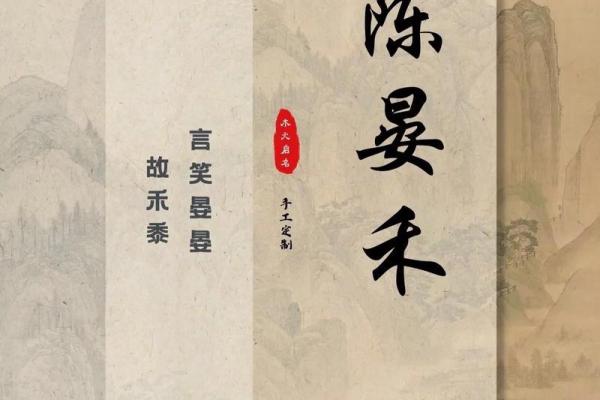 陈晏禾
木火启名
手工定制
言笑晏晏
故禾黍